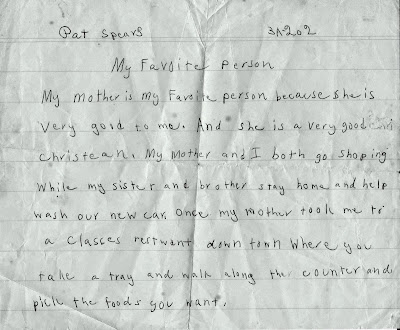 Pat Spears 3A-202
My Favoite Person
My mother is my Favoite person because she is
very good to me. And she is a very good
christean. My Mother and I both go shoping
While my sister and brother stay home and help
wash our new car. Once my mother took me to
a classes restwant down town where you
take a tray and walk along the counter and
pick the foods you want.